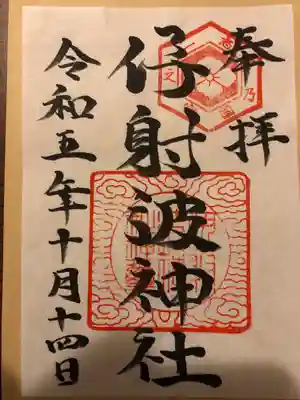 奉拝
伊射波神社
令和五年十月十四日